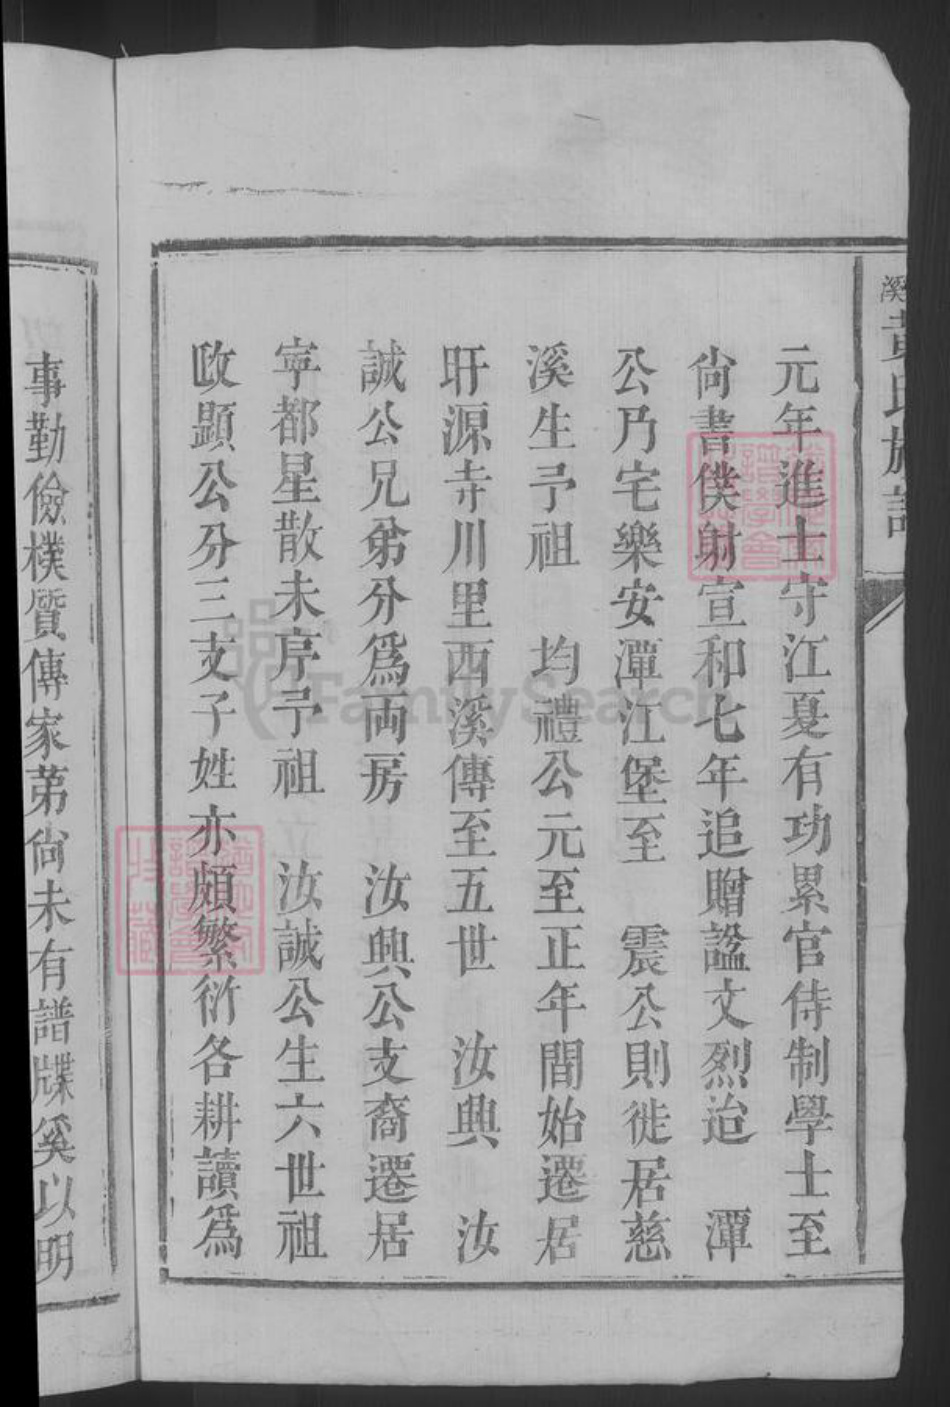 溪黃氏族譜
元年進士守江夏有功累官侍制學士至
尙書僕射宣和七年追贈諡文烈迨　潭
公乃宅樂安潭江堡至　震公則徙居慈
溪生予祖　均禮公元至正年間始遷居
盱源寺川里西溪傳至五世　汝興　汝
誠公兄弟分爲兩房　汝興公支裔遷居
寧都星散未序予祖　汝誠公生六世祖
政顯公分三支子姓亦頗繁衍各耕讀爲
事勤儉樸質傳家第尙未有譜牒奚以明
FamilySearch